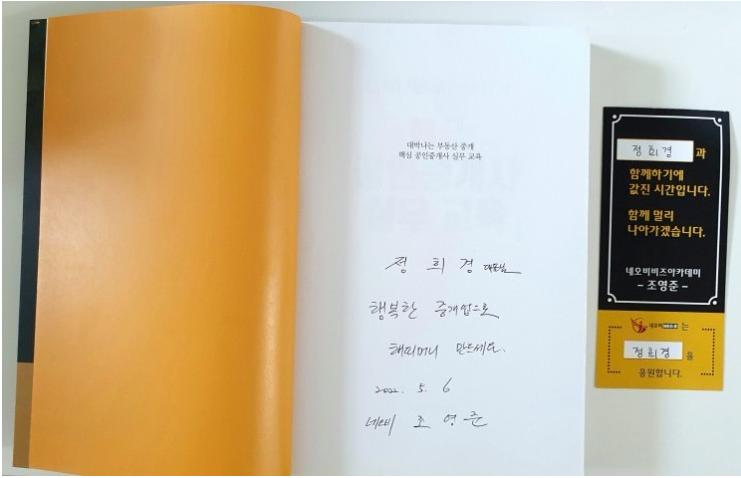 대박나는 부동산 중개
핵심 공인중개사 실무 교육
정 희 경 대표님
행복한 중개업으로
해피머니 만드세요.
2022. 5. 6
네오비 조 영 준
정희경 과
함께하기에
값진 시간입니다.
함께 멀리
나아가겠습니다.
네오비비즈아카데미
- 조영준 -
네오비 는
정희경 을
응원합니다.